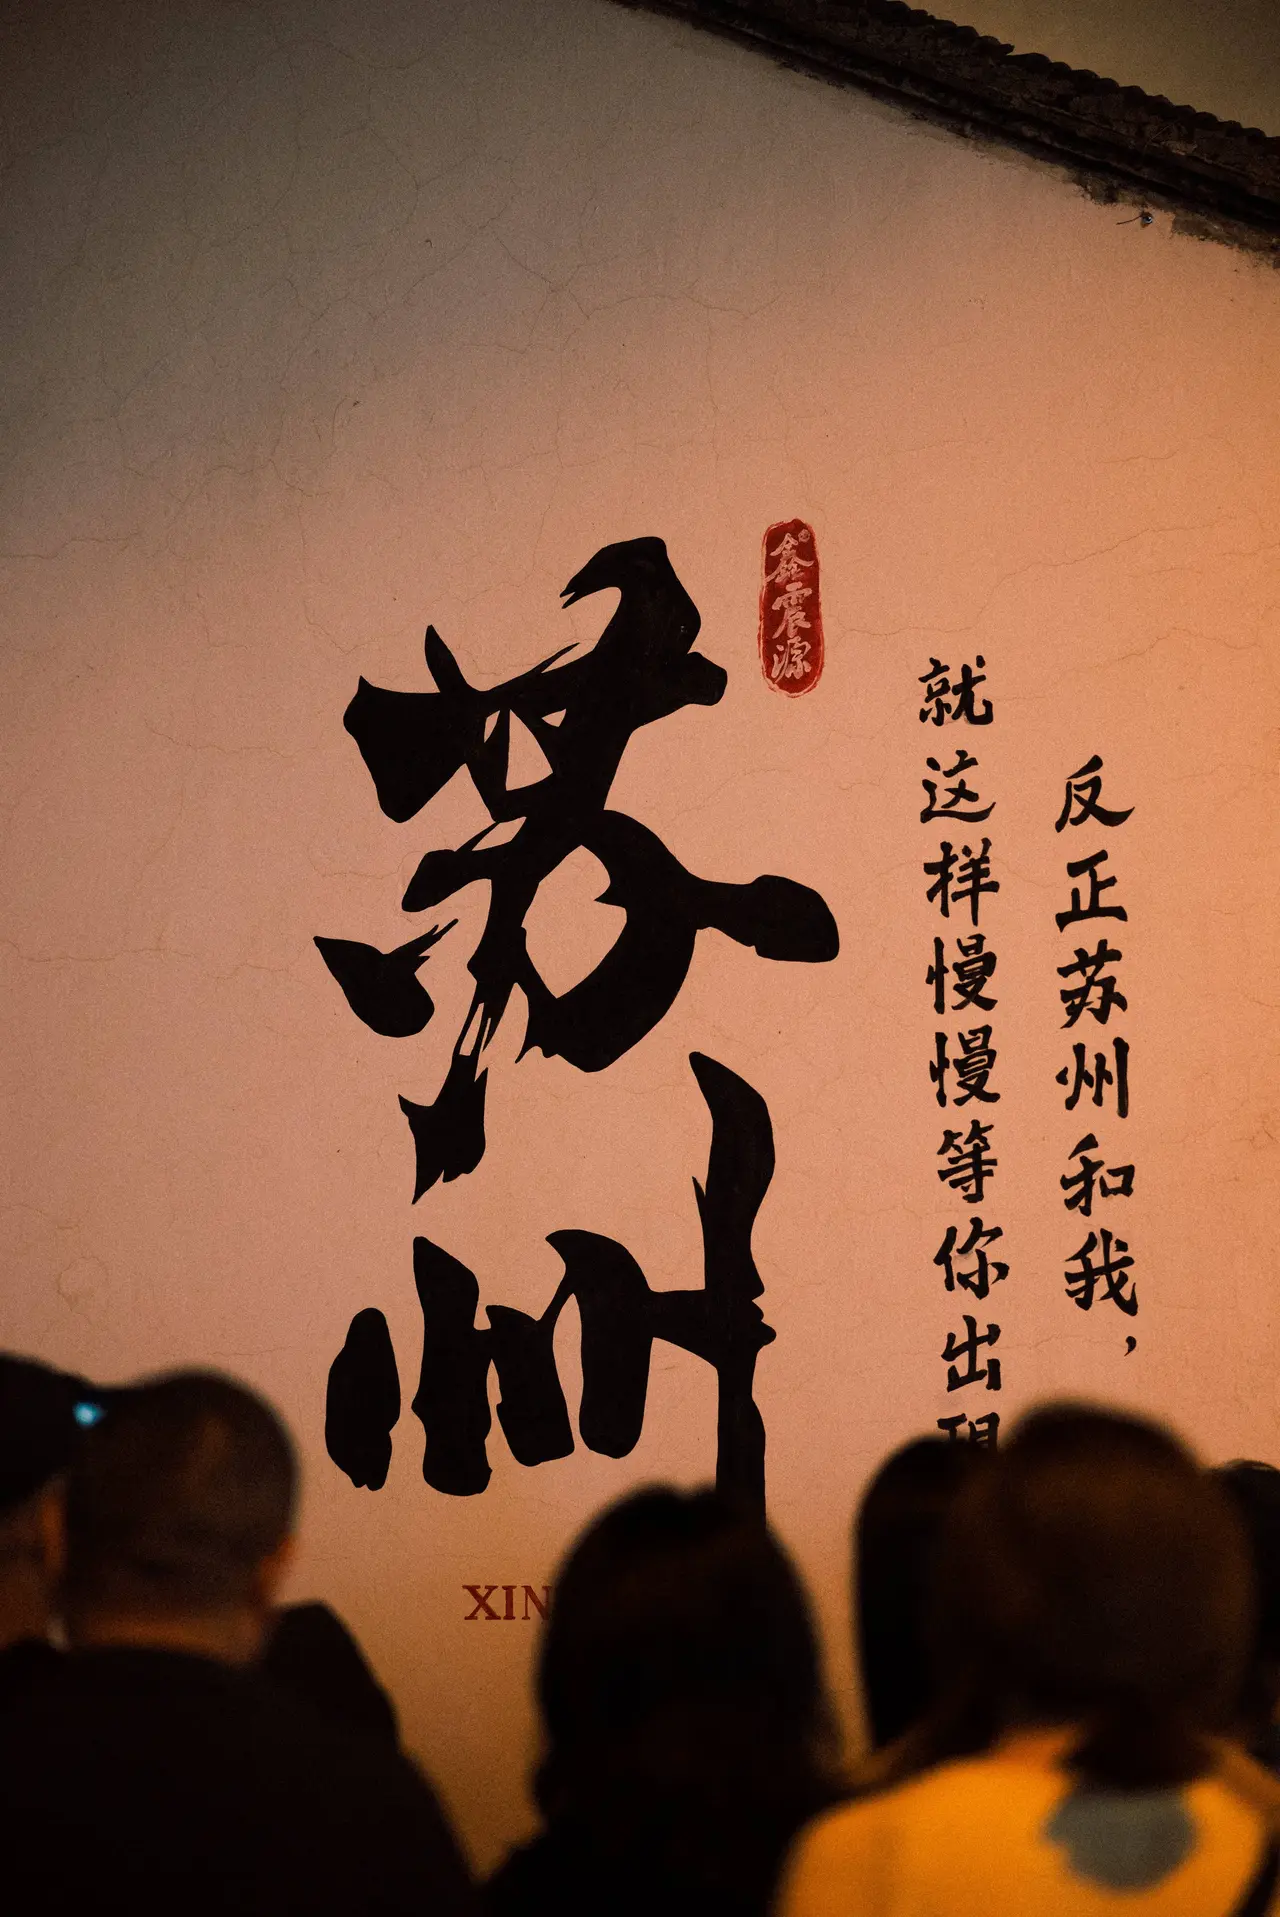 苏州
鑫震源
反正苏州和我，
就这样慢慢等你出现
XIN